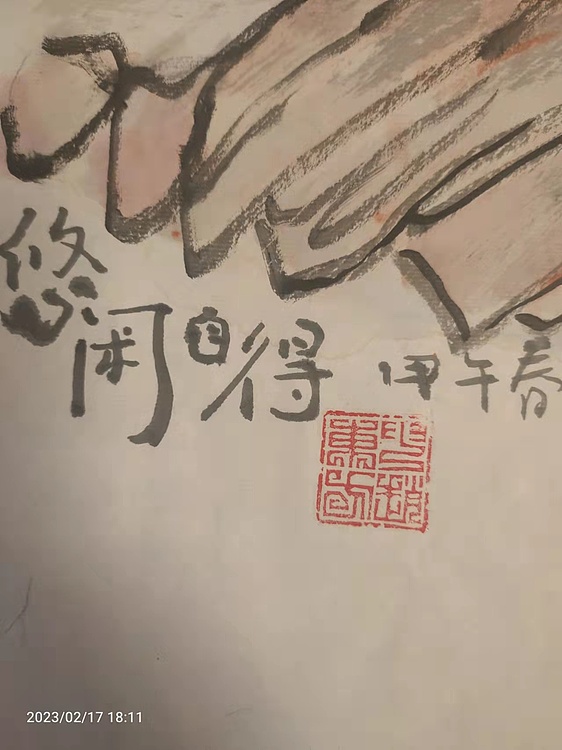 悠闲自得 甲午春
2023/02/17 18:11